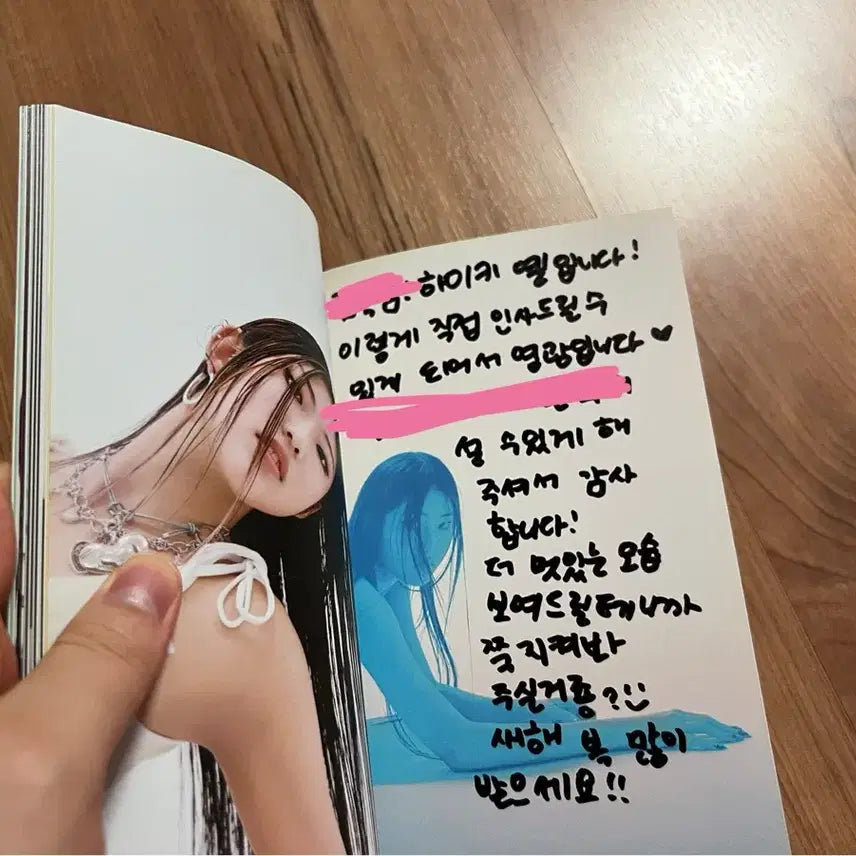 하이키 옐입니다!
이렇게 직접 인사드릴 수
있게 되어서 영광입니다♥
설 수있게 해
주셔서 감사
합니다!
더 멋있는 모습
보여드릴테니까
쭉 지켜봐
주실거죵?
새해 복 많이
받으세요!!